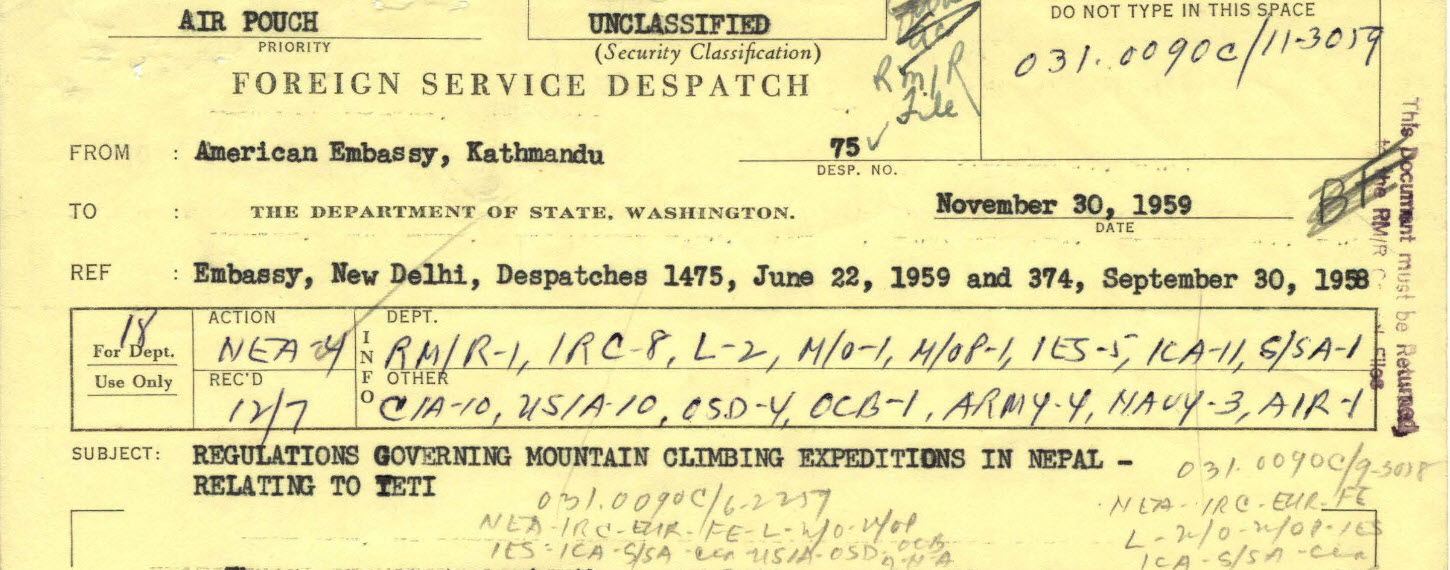 AIR POUCH
PRIORITY
UNCLASSIFIED
(Security Classification)
DO NOT TYPE IN THIS SPACE
031.0090c/11-3059
FOREIGN SERVICE DESPATCH
RM/R
File
FROM : American Embassy, Kathmandu
75
DESP. NO.
TO : THE DEPARTMENT OF STATE, WASHINGTON.
November 30, 1959
DATE
REF : Embassy, New Delhi, Despatches 1475, June 22, 1959 and 374, September 30, 1958
This Document must be Returned
the RM/R Files
18
For Dept.
Use Only
ACTION
NEA-4
REC'D
12/7
INFO
DEPT.
RM/R-1, IRC-8, L-2, M/O-1, M/OP-1, IES-5, ICA-11, S/SA-1
OTHER
CIA-10, USIA-10, OSD-4, OCB-1, ARMY-4, NAVY-3, AIR-1
SUBJECT: REGULATIONS GOVERNING MOUNTAIN CLIMBING EXPEDITIONS IN NEPAL -
RELATING TO YETI
031.0090c/6-2259
NEA-IRC-EUR-FE-L-M/O-M/OP
IES-ICA-S/SA-CIA-USIA-OSD-OCB
031.0090c/9-3058
NEA-IRC-EUR-FE
L-M/O-M/OP-IES
ICA-S/SA-CIA